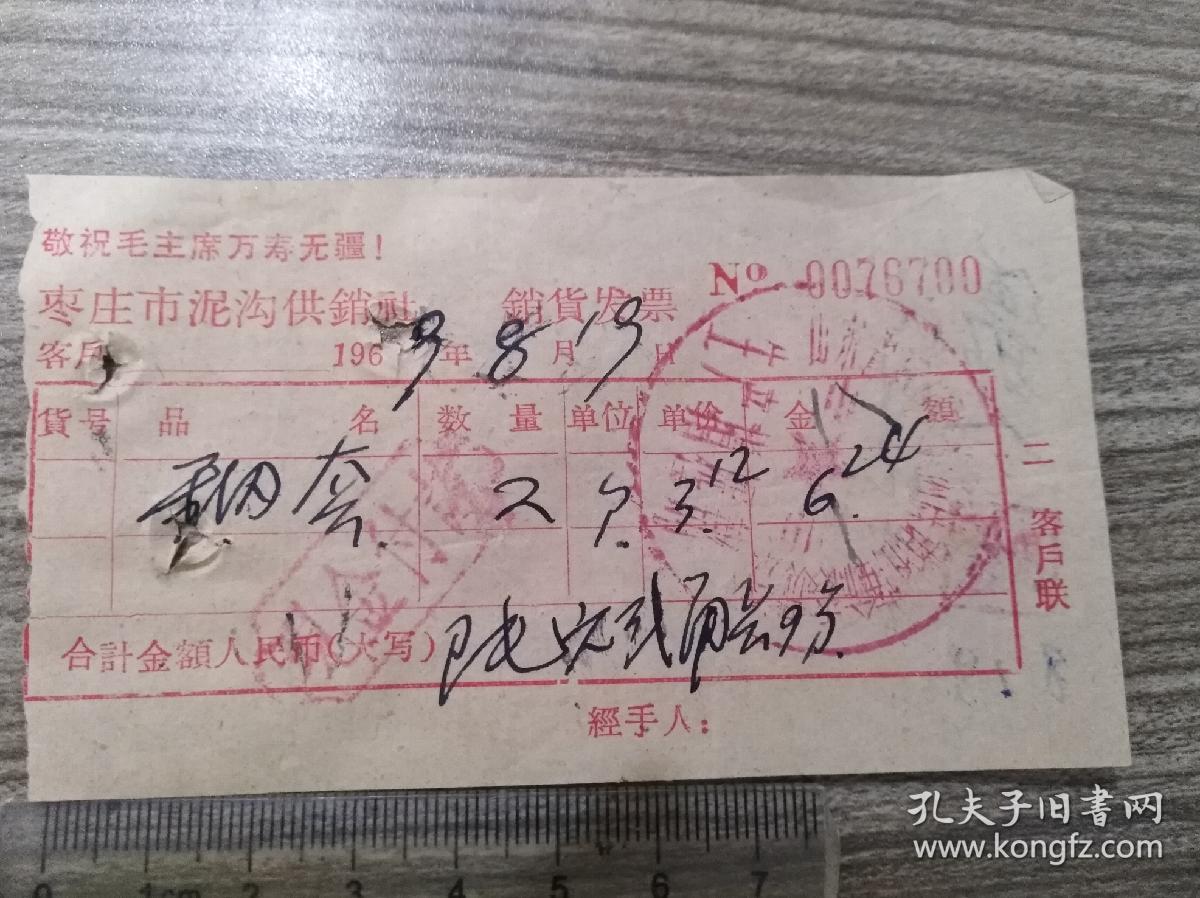 敬祝毛主席万寿无疆！
枣庄市泥沟供銷社 銷貨发票 Nº 0076700
客戶 1969年8月19日
貨号 品名 数量 单位 单价 金額
套 2 3.12 6.24
合計金額人民币(大写) 陆元贰角肆分
經手人：
二 客戶联
现金付讫
孔夫子旧书网
www.kongfz.com
0 1cm 2 3 4 5 6 7